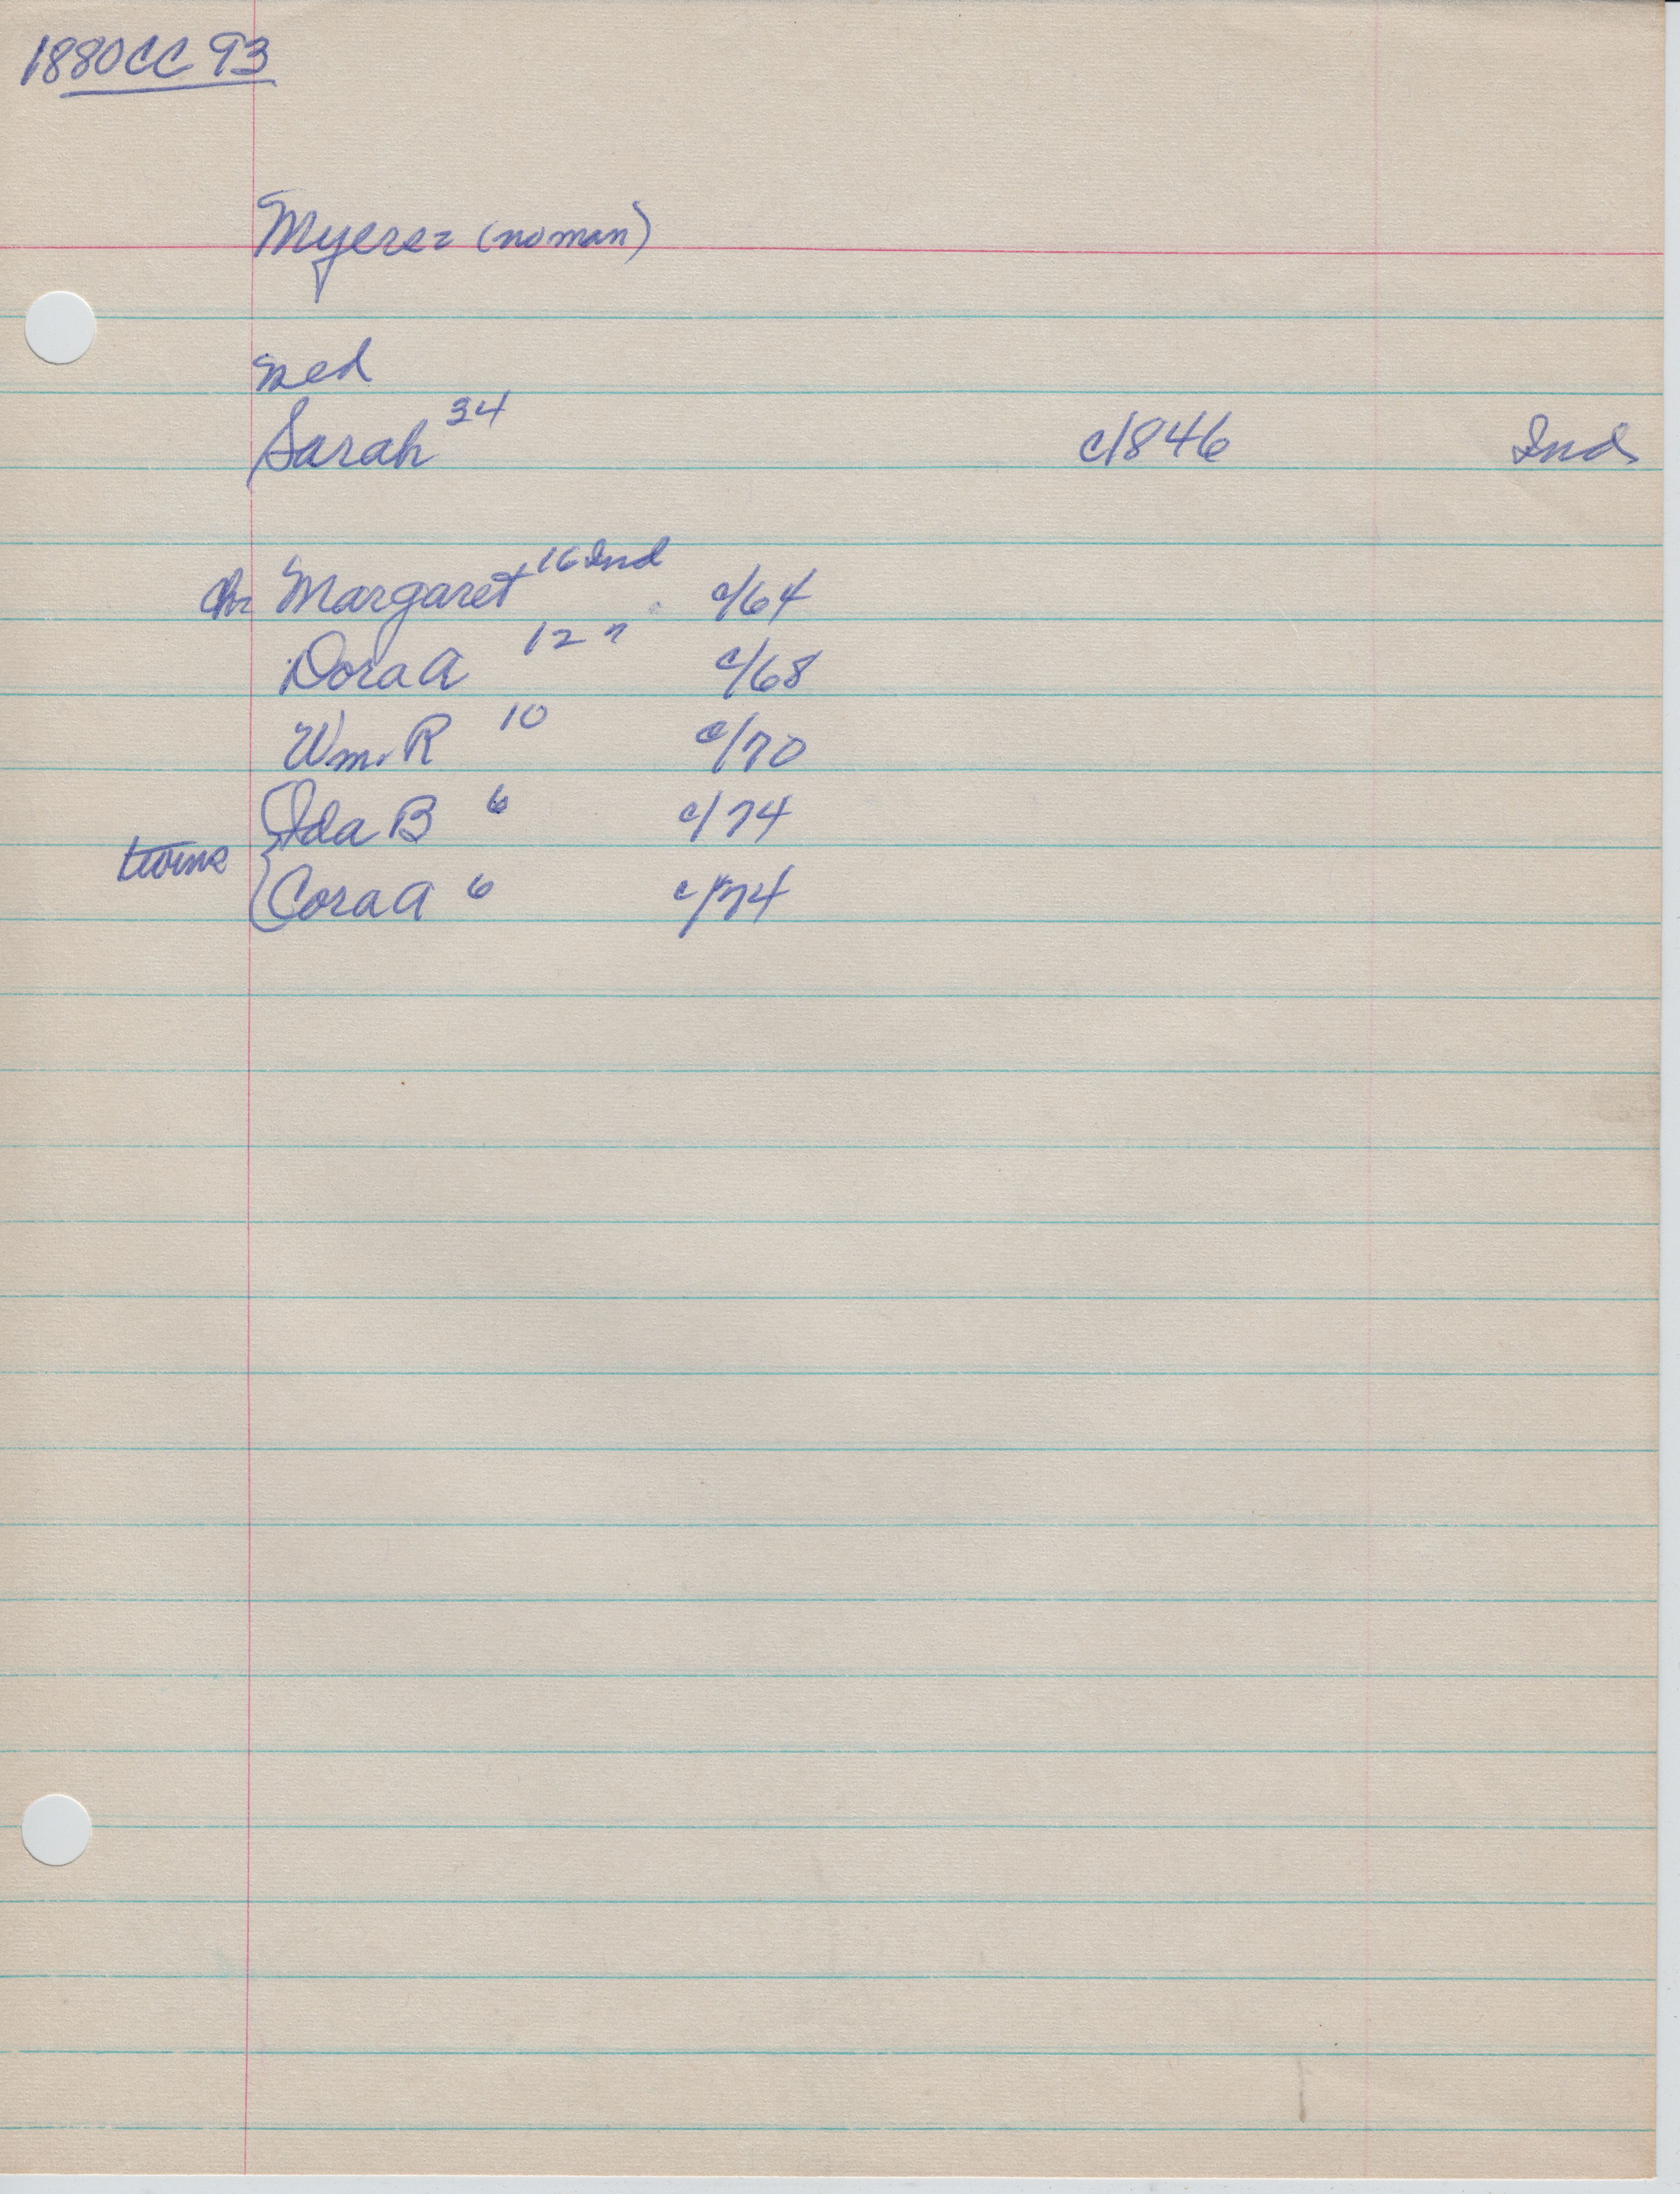 1880CC 93
Myers= (no man)
med
Sarah 34 c1846 Ind
Ch= Margaret 16 Ind c/64
Dora A 12 " c/68
Wm. R 10 c/70
Ida B 6 c/74
twins
Cora A 6 c/74